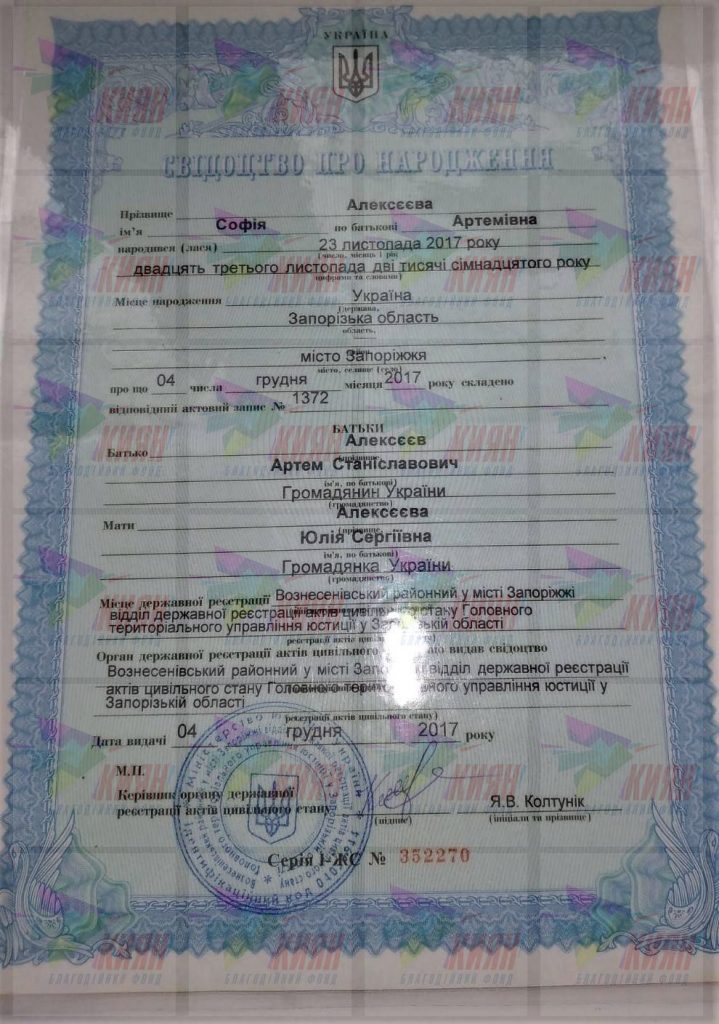 УКРАЇНА
СВІДОЦТВО ПРО НАРОДЖЕННЯ
Прізвище Алексєєва
ім'я Софія по батькові Артемівна
народився (лася) 23 листопада 2017 року
(число, місяць і рік
двадцять третього листопада дві тисячі сімнадцятого року
цифрами та словами)
Місце народження Україна
(держава,
Запорізька область
область,
місто Запоріжжя
місто, селище (село)
про що 04 числа грудня місяця 2017 року складено
відповідний актовий запис № 1372
БАТЬКИ
Батько Алексєєв
(прізвище,
Артем Станіславович
ім'я, по батькові)
Громадянин України
(громадянство)
Мати Алексєєва
(прізвище,
Юлія Сергіївна
ім'я, по батькові)
Громадянка України
(громадянство)
Місце державної реєстрації Вознесенівський районний у місті Запоріжжі
відділ державної реєстрації актів цивільного стану Головного
територіального управління юстиції у Запорізькій області
реєстрації актів цивільного стану)
Орган державної реєстрації актів цивільного що видав свідоцтво
Вознесенівський районний у місті Запоріжжі відділ державної реєстрації
актів цивільного стану Головного територіального управління юстиції у
Запорізькій області
реєстрації актів цивільного стану)
Дата видачі 04 грудня 2017 року
М.П.
Керівник органу державної
реєстрації актів цивільного стану Я.В. Колтунік
(підпис) (ініціали та прізвище)
Серія І-ЖС № 352270
КИЯН
БЛАГОДІЙНИЙ ФОНД